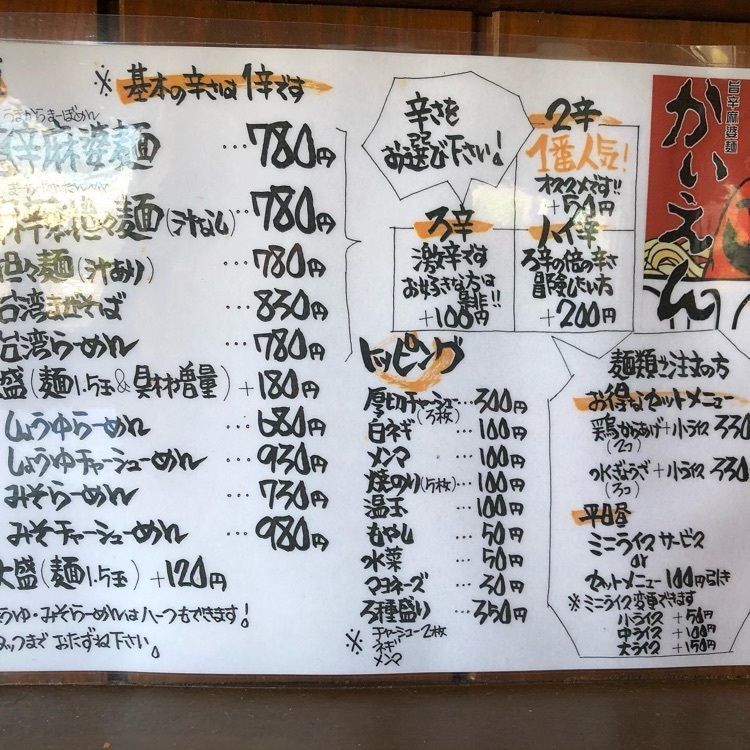 ※ 基本の辛さは1辛です
うまからまーぼめん
辛麻婆麺 … 780円
麺(汁なし) … 780円
担々麺(汁あり) … 780円
台湾まぜそば … 830円
台湾らーめん … 780円
盛(麺1.5玉&具材増量) +180円
しょうゆらーめん … 680円
しょうゆチャーシューめん … 930円
みそらーめん … 730円
みそチャーシューめん … 980円
大盛(麺1.5玉) +120円
うゆ・みそらーめんはハーフもできます!
タッフまで おたずね下さい。
辛さを
お選び下さい!
2辛
1番人気!
オススメです!!
+50円
3辛
激辛です
お好きな方は
是非!!
+100円
ハイ辛
3辛の倍の辛さ
冒険したい方
+200円
トッピング
厚切チャーシュー(3枚) … 300円
白ネギ … 100円
メンマ … 100円
焼のり(5枚) … 100円
温玉 … 100円
もやし … 50円
水菜 … 50円
マヨネーズ … 30円
3種盛り … 350円
※ チャーシュー2枚
ネギ
メンマ
旨辛麻婆麺
かいえん
麺類ご注文の方
お得なセットメニュー
鶏からあげ+小ライス 330
(2コ)
水ぎょうざ+小ライス 330
(3コ)
平日昼
ミニライス サービス
or
セットメニュー 100円引き
※ミニライス変更できます
小ライス +50円
中ライス +100円
大ライス +150円